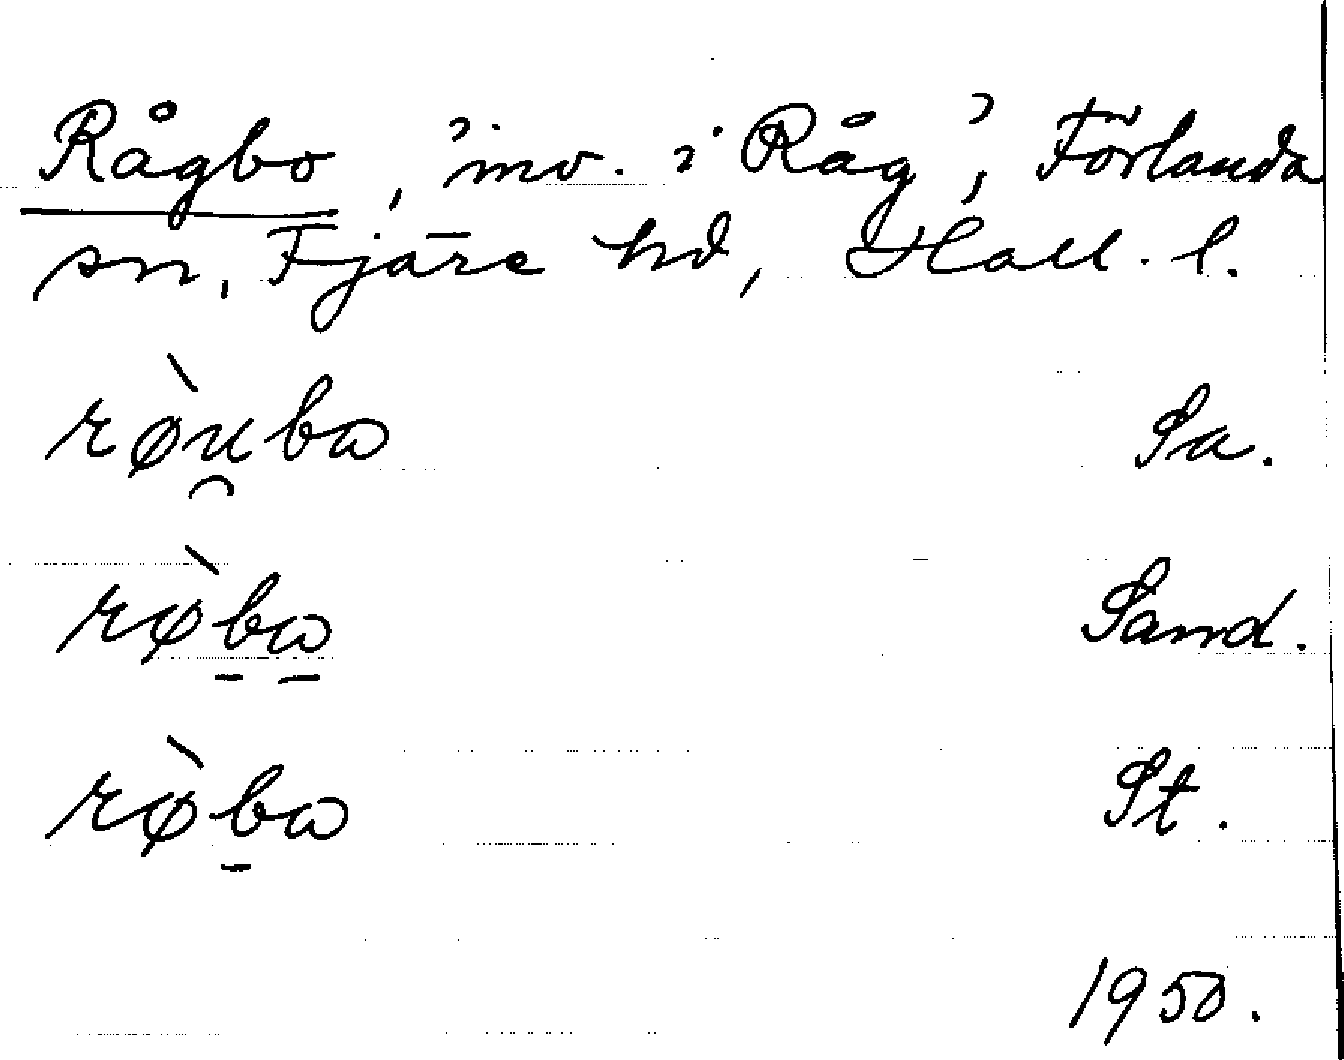 Rågbo, 'inv. i Råg', Förlanda
sn, Fjäre hd, Hall. l.
rø̀u̯bω Sa.
rø̀b̲ω̲ Sand.
rø̀b̲ω St.
1950.